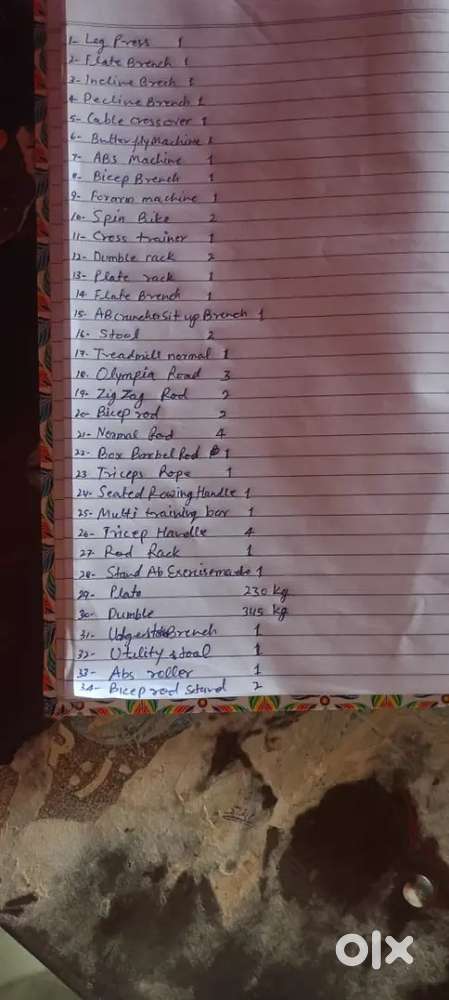 1- Leg Press 1
2- Flate Brench 1
3- Incline Brech 1
4- Decline Brench 1
5- Cable crossover 1
6- Butterfly Machine 1
7- ABs Machine 1
8- Bicep Brench 1
9- Forarm machine 1
10- Spin Bike 2
11- Cross trainer 1
12- Dumble rack 2
13- Plate rack 1
14- Flate Brench 1
15- AB cruncher Sit up Brench 1
16- Stool 2
17- Treadmill normal 1
18- Olympia Road 3
19- Zig Zag Rod 2
20- Bicep rod 2
21- Normal Rod 4
22- Box Barbel Rod 1
23 Triceps Rope 1
24- Seated Rowing Handle 1
25- Multi training bar 1
26- Tricep Handle 4
27- Rod Rack 1
28- Stand Ab Exercise made 1
29- Plate 230 kg
30- Dumble 345 kg
31- Brench 1
32- Utility stool 1
33- Abs roller 1
34- Bicep rod stand 2
olx